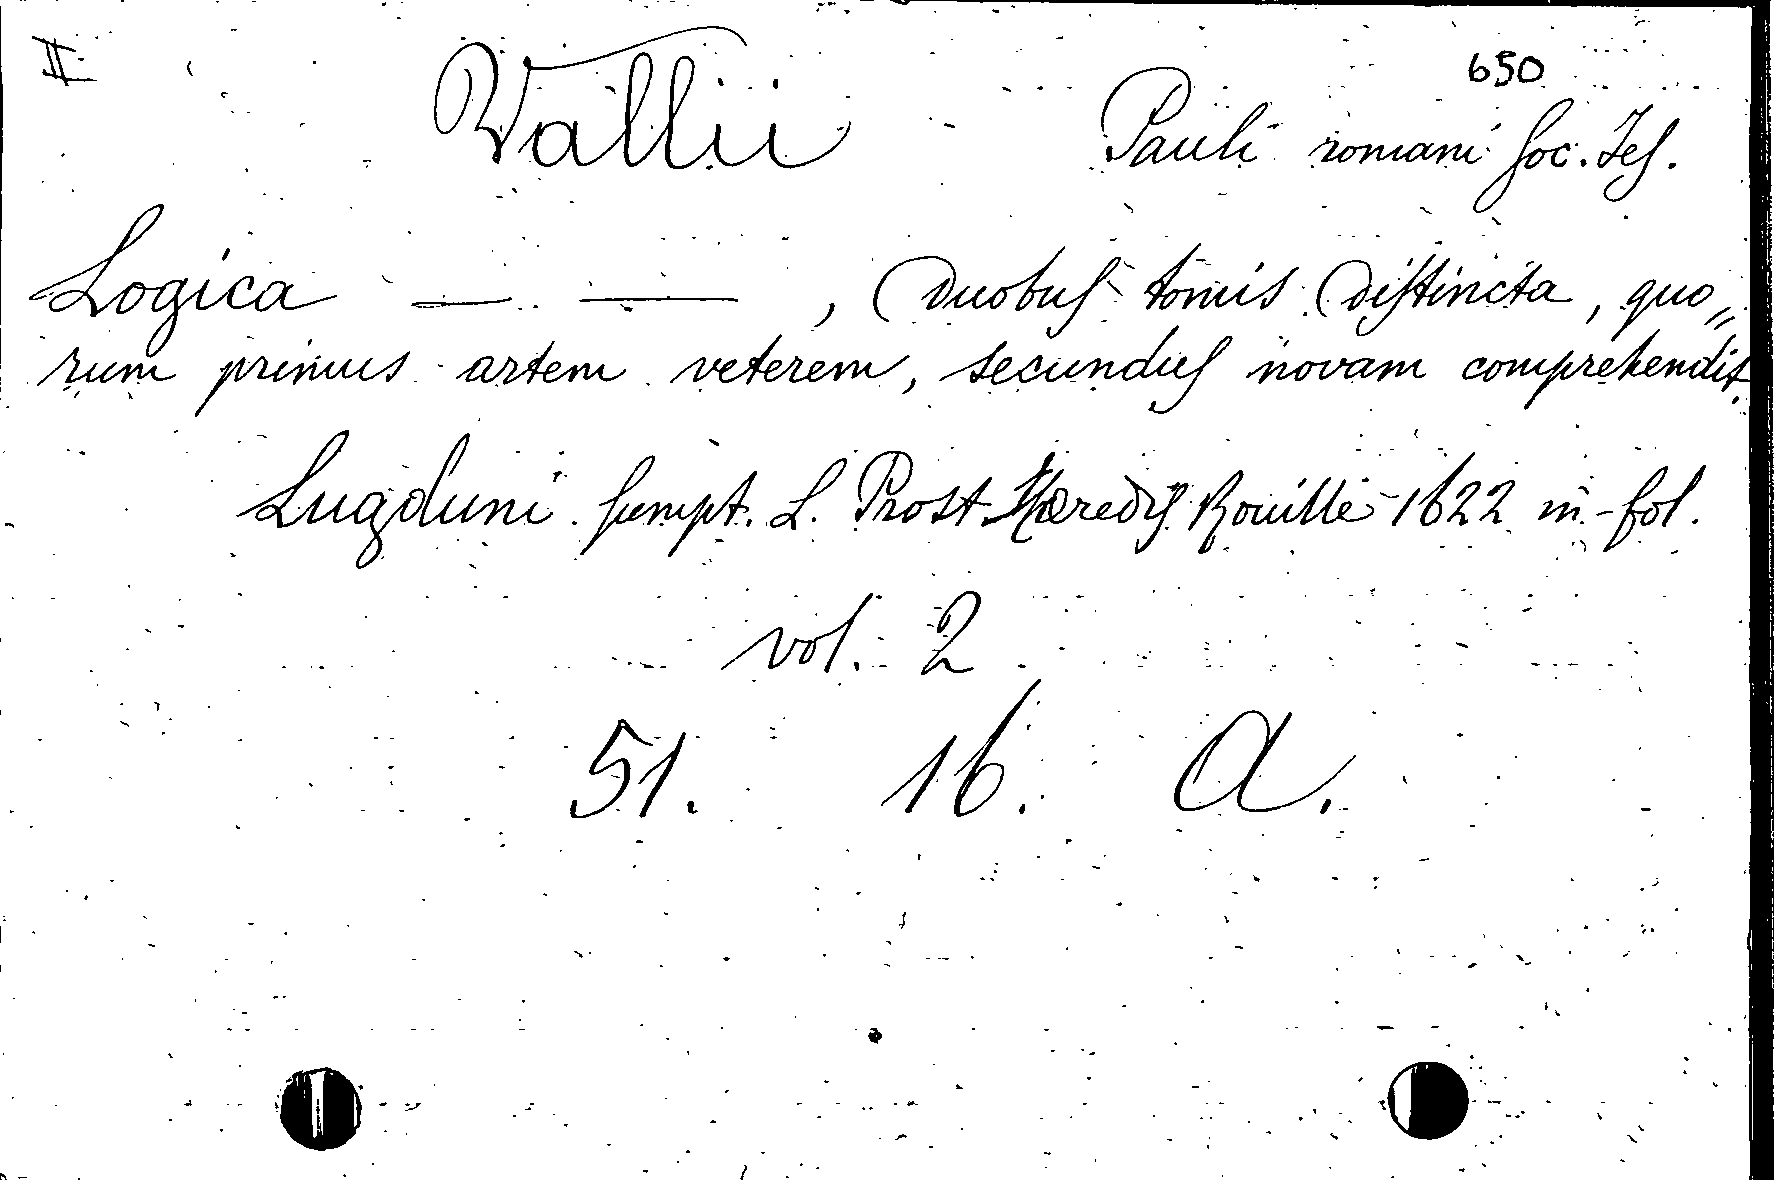 II 650
Vallii Pauli romani Soc. Jes.
Logica — —, duobus tomis distincta, quo„
rum primus artem veterem, secundus novam comprehendit.
Lugduni sumpt. L. Prost Hæredis Rouille 1622 in-fol.
vol. 2
51. 16. A.